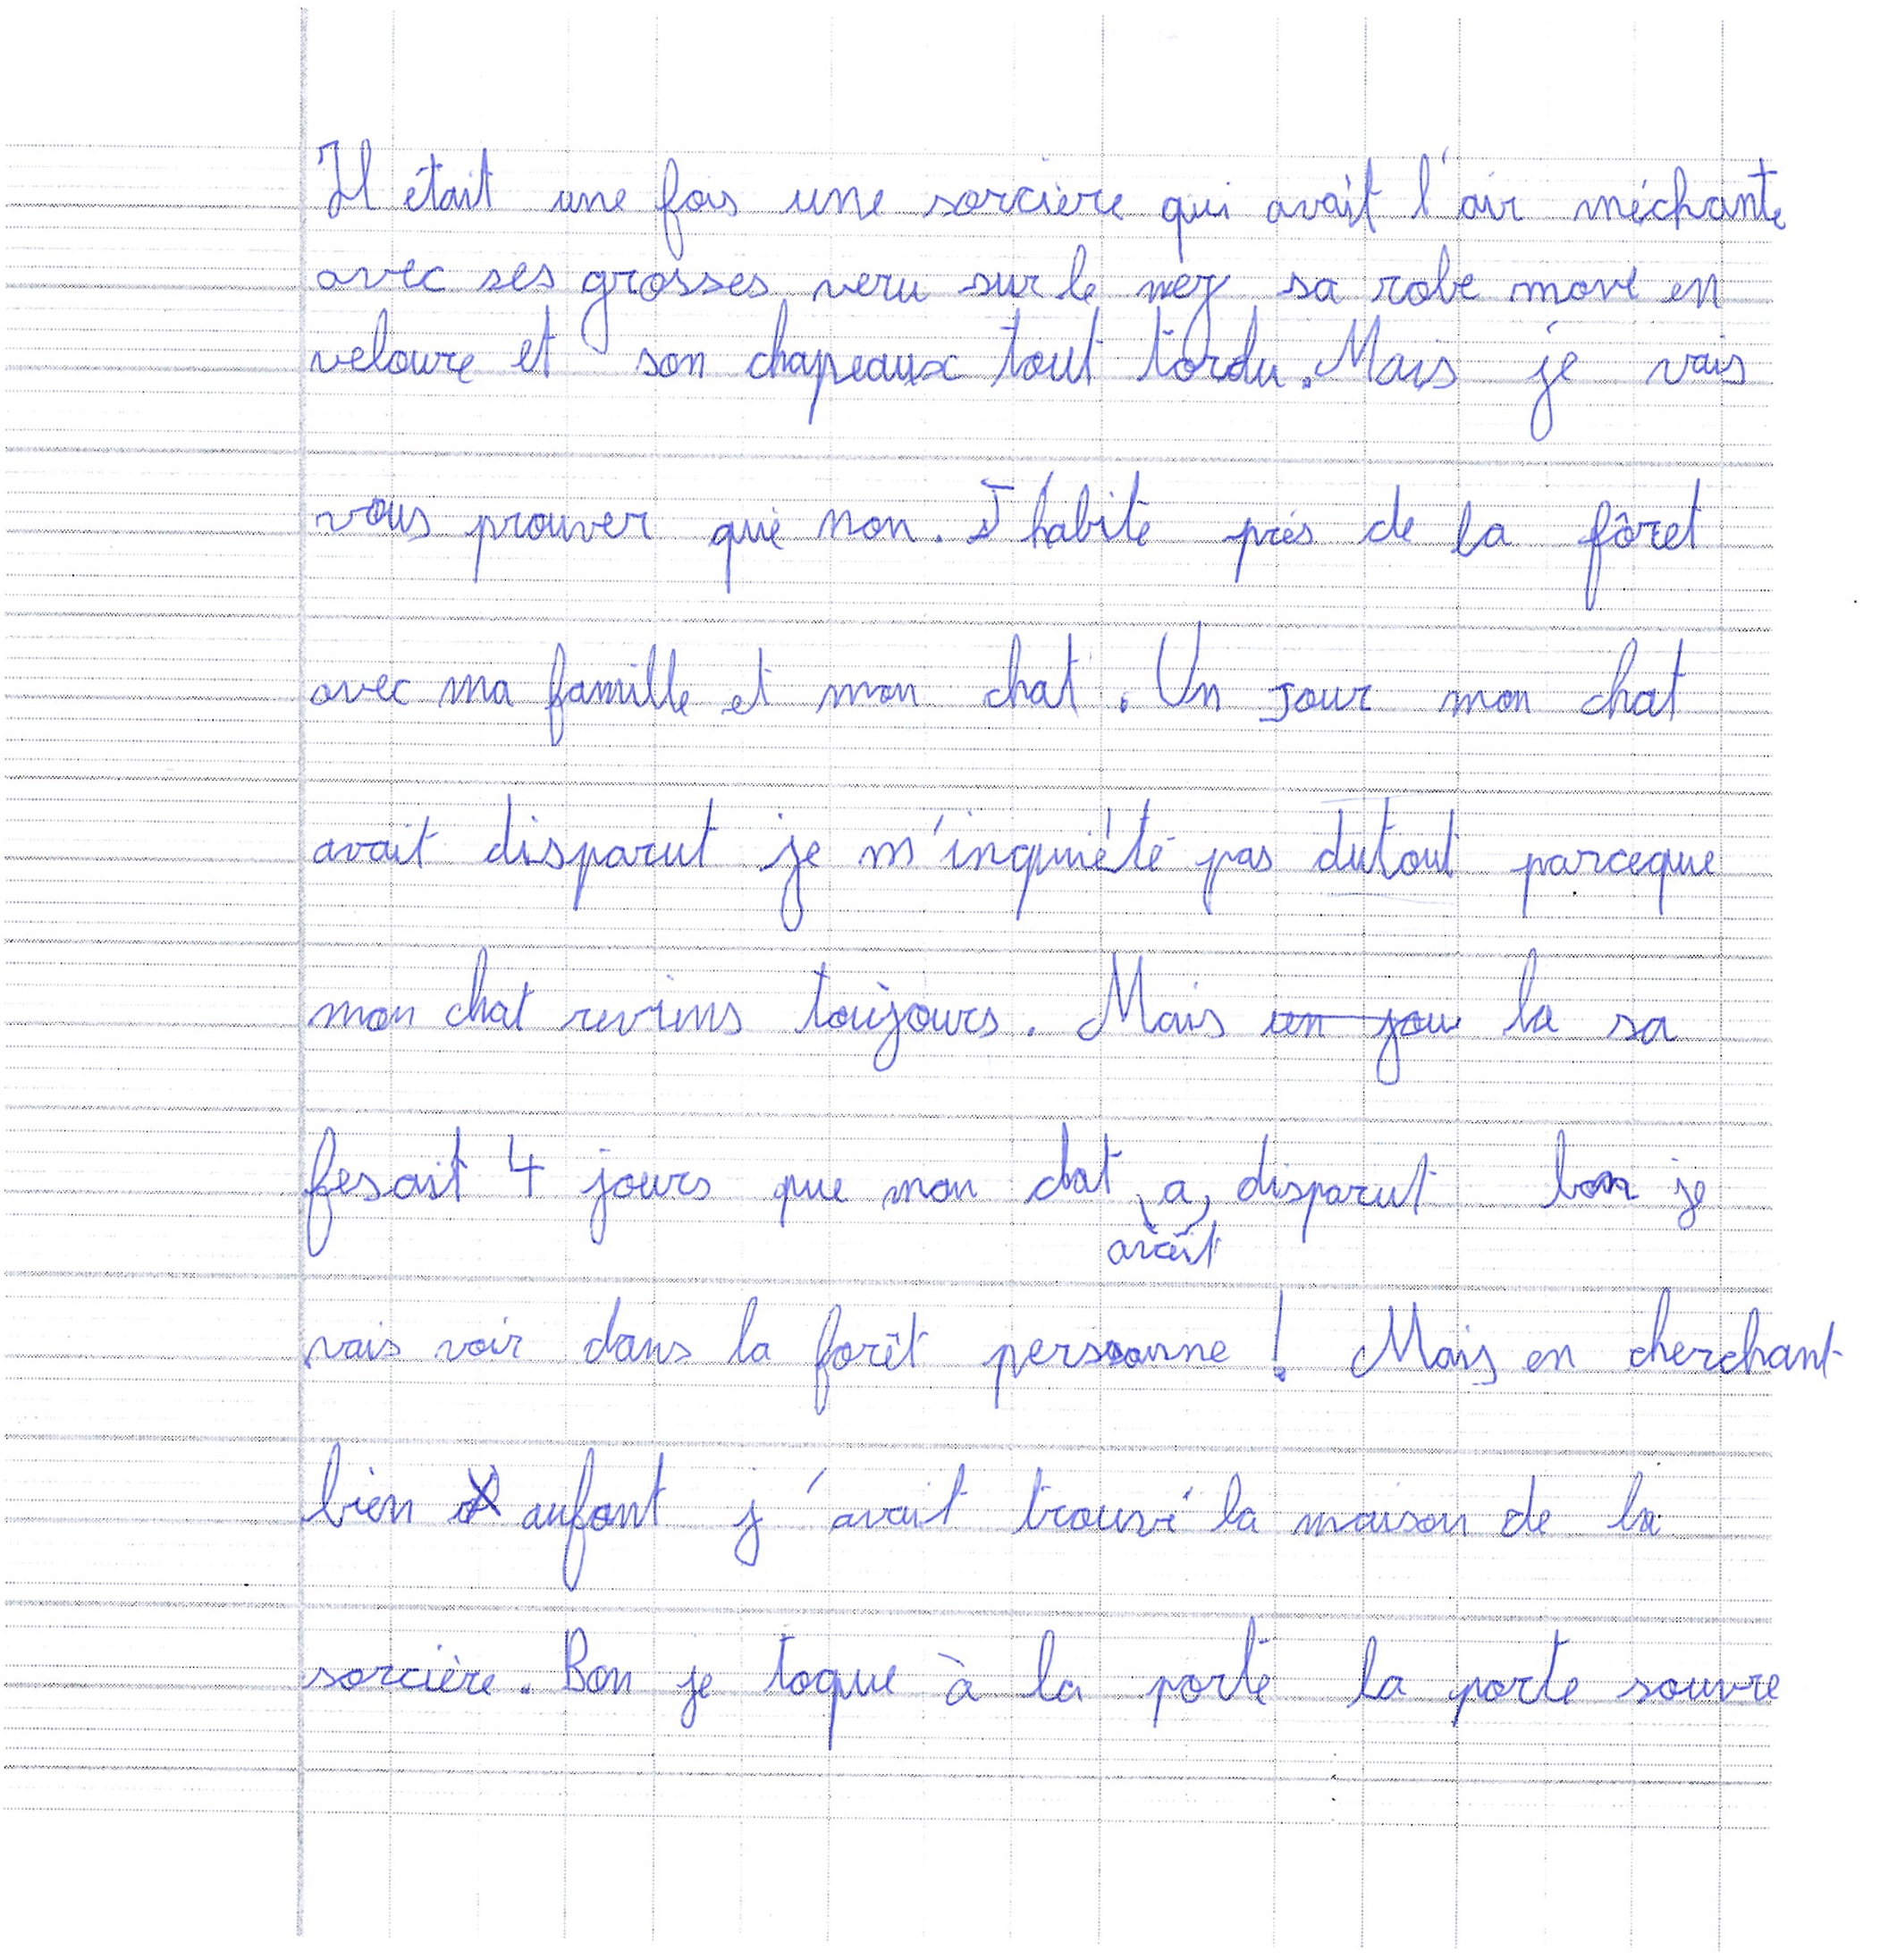 Il était une fois une sorcière qui avait l'air méchante
avec ses grosses veru sur le nez sa robe move en
veloure et son chapeaux tout tordu. Mais je vais
vous prouver que non. J'habite près de la fôret
avec ma famille et mon chat. Un jour mon chat
avait disparut je m'inquiété pas dutout parceque
mon chat reviens toujours. Mais un jour la sa
fesait 4 jours que mon chat (a) disparut bon je
avait
vais voir dans la forêt personne ! Mais en cherchant
bien aufont j'avait trouvé la maison de la
sorcière. Bon je toque à la porte la porte souvre